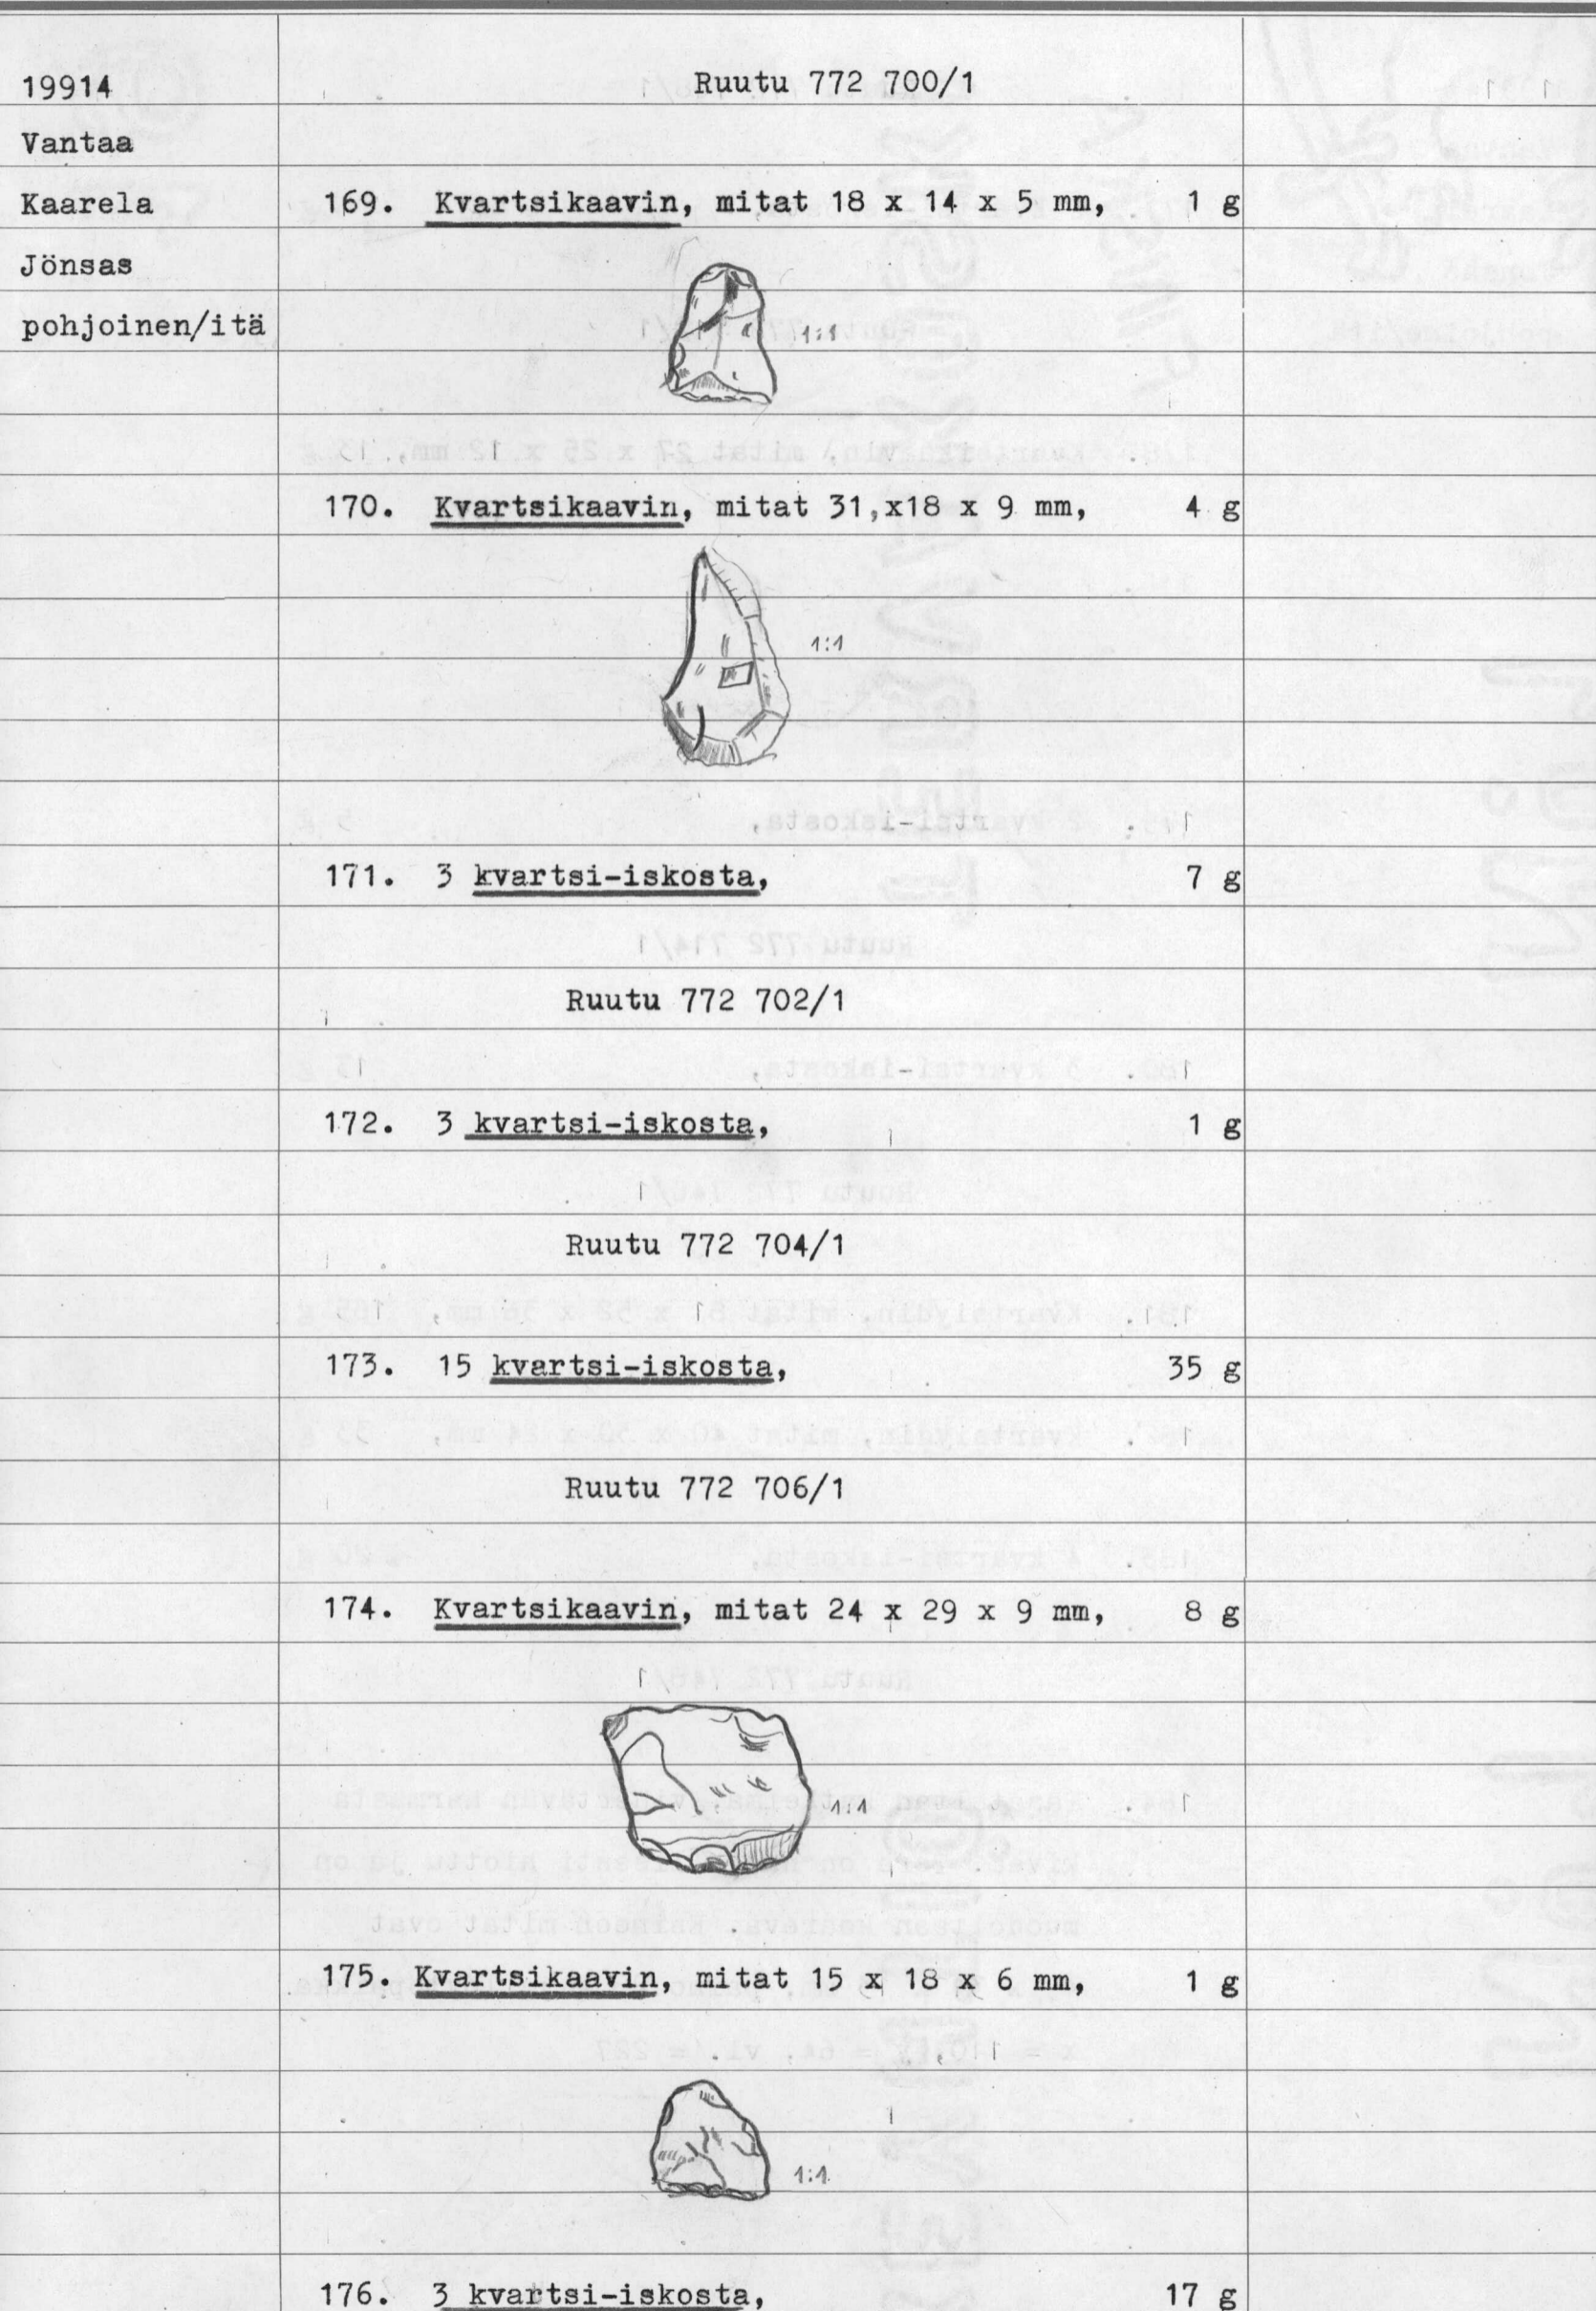 19914
Ruutu 772 700/1
Vantaa
Kaarela
169. Kvartsikaavin, mitat 18 x 14 x 5 mm, 1 g
Jönsas
pohjoinen/itä
1:1
170. Kvartsikaavin, mitat 31,x18 x 9 mm, 4 g
1:1
171. 3 kvartsi-iskosta, 7 g
Ruutu 772 702/1
172. 3 kvartsi-iskosta, 1 g
Ruutu 772 704/1
173. 15 kvartsi-iskosta, 35 g
Ruutu 772 706/1
174. Kvartsikaavin, mitat 24 x 29 x 9 mm, 8 g
1:1
175. Kvartsikaavin, mitat 15 x 18 x 6 mm, 1 g
1:1
176. 3 kvartsi-iskosta, 17 g